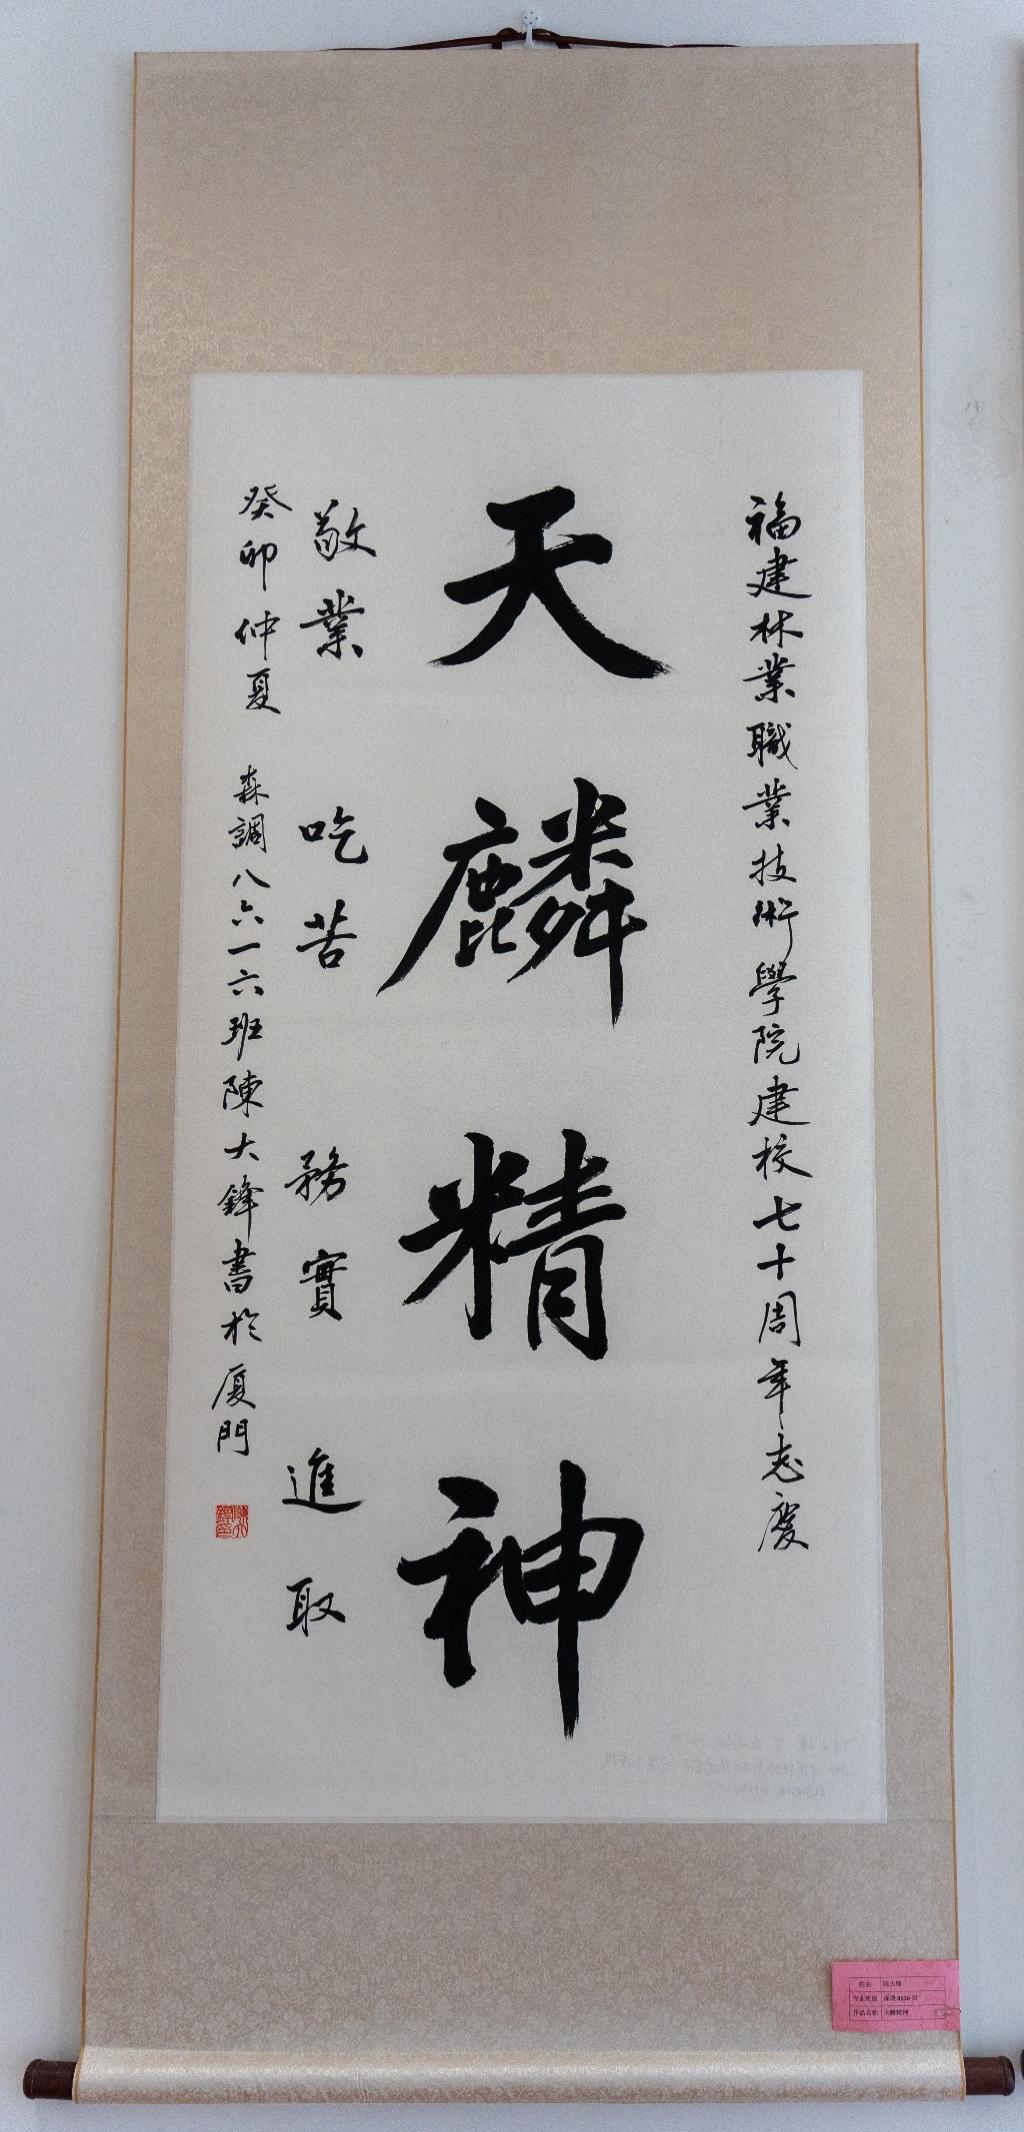 福建林業職業技術學院建校七十周年志慶
天麟精神
敬業 吃苦 務實 進取
癸卯仲夏 森調八六一六班陳大鋒書於厦門
姓名 陈大锋
专业班级 森调8616班
作品名称 天麟精神